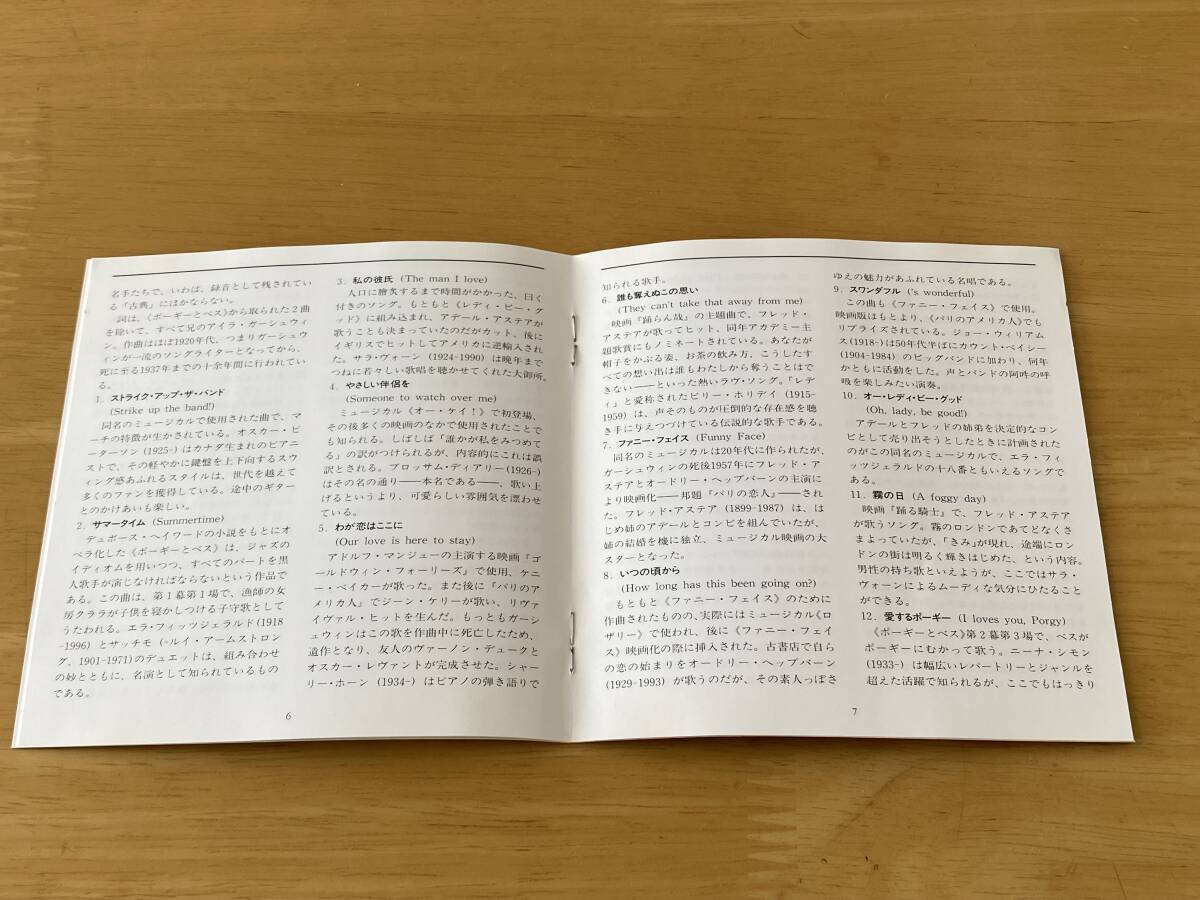 名手たちで、いわば、録音として残されてい
る「古典」にほかならない。
詞は、《ポーギーとベス》から取られた2曲
を除いて、すべて兄のアイラ・ガーシュウィ
ン。作曲はほぼ1920年代、つまりガーシュウ
ィンが一流のソングライターとなってから、
死に至る1937年までの十余年間に行われてい
る。
1. ストライク・アップ・ザ・バンド
(Strike up the band!)
同名のミュージカルで使用された曲で、マ
ーチの特徴が生かされている。オスカー・ピ
ーターソン (1925-) はカナダ生まれのピアニ
ストで、その軽やかに鍵盤を上下向するスウ
ィング感あふれるスタイルは、世代を越えて
多くのファンを獲得している。途中のギター
とのかけあいも楽しい。
2. サマータイム (Summertime)
デュボース・ヘイワードの小説をもとにオ
ペラ化した《ポーギーとベス》は、ジャズの
イディオムを用いつつ、すべてのパートを黒
人歌手が演じなければならないという作品で
ある。この曲は、第1幕第1場で、漁師の女
房クララが子供を寝かしつける子守歌として
うたわれる。エラ・フィッツジェラルド (1918
-1996) とサッチモ (=ルイ・アームストロン
グ、1901-1971) のデュエットは、組み合わせ
の妙とともに、名演として知られているもの
である。
6
3. 私の彼氏 (The man I love)
人口に膾炙するまで時間がかかった、曰く
付きのソング。もともと《レディ・ビー・グ
ッド》に組み込まれ、アデール・アステアが
歌うことも決まっていたのだがカット、後に
イギリスでヒットしてアメリカに逆輸入され
た。サラ・ヴォーン (1924-1990) は晩年まで
つねに若々しい歌唱を聴かせてくれた大御所。
4. やさしい伴侶を
(Someone to watch over me)
ミュージカル《オー・ケイ!》で初登場、
その後多くの映画のなかで使用されたことで
も知られる。しばしば「誰かが私をみつめて
る」の訳がつけられるが、内容的にこれは誤
訳とされる。ブロッサム・ディアリー (1926-)
はその名の通り——本名である——、歌い上
げるというより、可愛らしい雰囲気を漂わせ
ている。
5. わが恋はここに
(Our love is here to stay)
アドルフ・マンジューの主演する映画『ゴ
ールドウィン・フォーリーズ』で使用、ケニ
ー・ベイカーが歌った。また後に『パリのア
メリカ人』でジーン・ケリーが歌い、リヴァ
イヴァル・ヒットを生んだ。もっともガーシ
ュウィンはこの歌を作曲中に死亡したため、
遺作となり、友人のヴァーノン・デュークと
オスカー・レヴァントが完成させた。シャー
リー・ホーン (1934-) はピアノの弾き語りで
知られる歌手。
6. 誰も奪えぬこの思い
(They can't take that away from me)
映画『踊らん哉』の主題曲で、フレッド・
アステアが歌ってヒット、同年アカデミー主
題歌賞にもノミネートされている。あなたが
帽子をかぶる姿、お茶の飲み方、こうしたす
べての想い出は誰もわたしから奪うことはで
きない——といった熱いラヴ・ソング。「レデ
ィ」と愛称されたビリー・ホリデイ (1915-
1959) は、声そのものが圧倒的な存在感を聴
き手に与えつづけている伝説的な歌手である。
7. ファニー・フェイス (Funny Face)
同名のミュージカルは20年代に作られたが、
ガーシュウィンの死後1957年にフレッド・ア
ステアとオードリー・ヘップバーンの主演に
より映画化——邦題『パリの恋人』——され
た。フレッド・アステア (1899-1987) は、は
じめ姉のアデールとコンビを組んでいたが、
姉の結婚を機に独立、ミュージカル映画の大
スターとなった。
8. いつの頃から
(How long has this been going on?)
もともと《ファニー・フェイス》のために
作曲されたものの、実際にはミュージカル《ロ
ザリー》で使われ、後に《ファニー・フェイ
ス》映画化の際に挿入された。古書店で自ら
の恋の始まりをオードリー・ヘップバーン
(1929-1993) が歌うのだが、その素人っぽさ
7
ゆえの魅力があふれている名唱である。
9. スワンダフル ('s wonderful)
この曲も《ファニー・フェイス》で使用。
映画版はもとより、《パリのアメリカ人》でも
リプライズされている。ジョー・ウィリアム
ス (1918-) は50年代半ばにカウント・ベイシー
(1904-1984) のビッグバンドに加わり、何年
かともに活動をした。声とバンドの阿吽の呼
吸を楽しみたい演奏。
10. オー・レディ・ビー・グッド
(Oh, lady, be good!)
アデールとフレッドの姉弟を決定的なコン
ビとして売り出そうとしたときに計画された
のがこの同名のミュージカルで、エラ・フィ
ッツジェラルドの十八番ともいえるソングで
ある。
11. 霧の日 (A foggy day)
映画『踊る騎士』で、フレッド・アステア
が歌うソング。霧のロンドンであてどなくさ
まよっていたが、「きみ」が現れ、途端にロン
ドンの街は明るく輝きはじめた、という内容。
男性の持ち歌といえようが、ここではサラ・
ヴォーンによるムーディな気分にひたること
ができる。
12. 愛するポーギー (I loves you, Porgy)
《ポーギーとベス》第2幕第3場で、ベスが
ポーギーにむかって歌う。ニーナ・シモン
(1933-) は幅広いレパートリーとジャンルを
超えた活躍で知られるが、ここでもはっきり